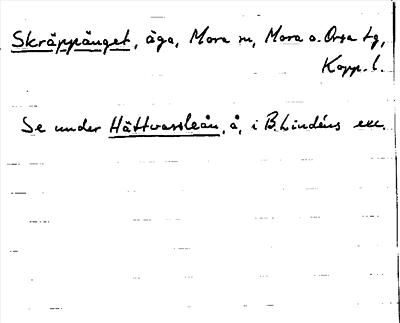 Skräppänget, äga, Mora sn, Mora o. Orsa tg,
Kopp. l.
Se under Hättvassleån, å, i B. Lindéns exc.